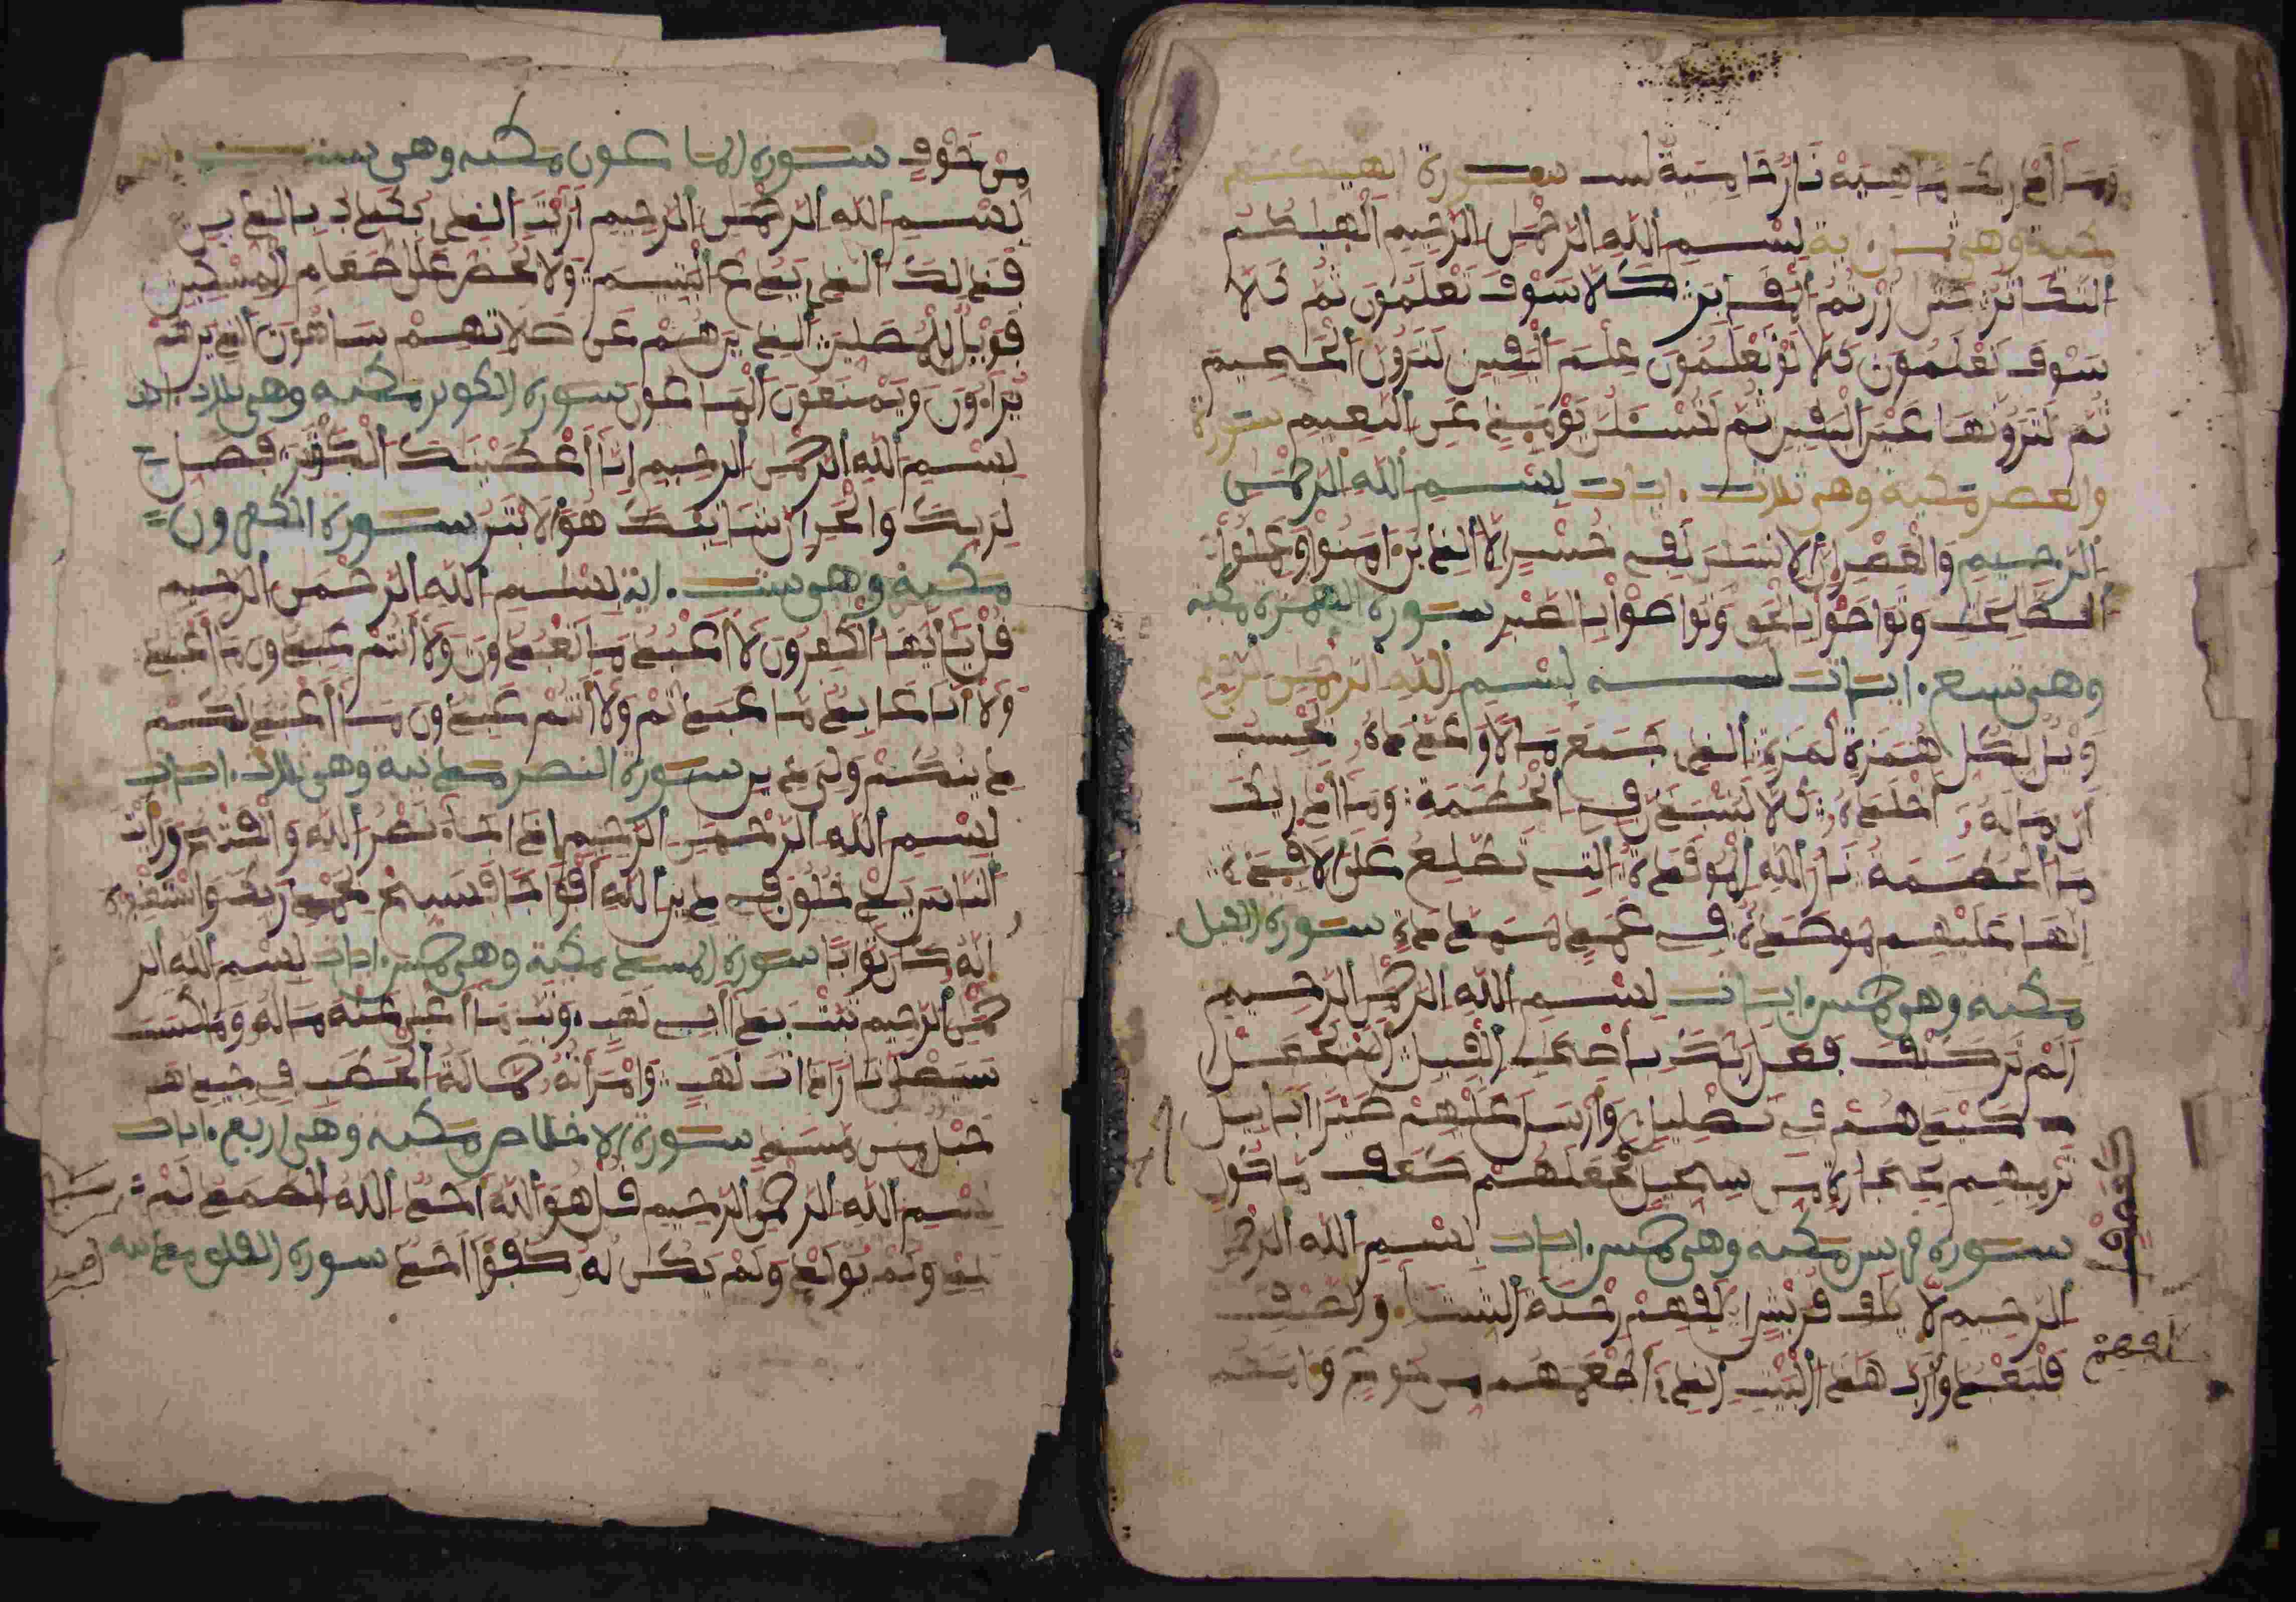 وما أدريك ما هيه نار حامية سورة ألهيكم
مكية وهي ثمان اية بسم الله الرحمن الرحيم ألهيكم
التكاثر حتى زرتم المقابر كلا سوف تعلمون ثم كلا
سوف تعلمون كلا لو تعلمون علم اليقين لترون الجحيم
ثم لترونها عين اليقين ثم لتسئلن يومئذ عن النعيم سورة
والعصر مكية وهي ثلاث ايات بسم الله الرحمن
الرحيم والعصر إن الإنسن لفي خسر إلا الذين ءامنوا وعملوا
الصلحت وتواصوا بالحق وتواصوا بالصبر سورة الهمزة مكية
وهي تسع ايات بسم الله الرحمن الرحيم
ويل لكل همزة لمزة الذي جمع مالا وعدده يحسب
أن ماله أخلده كلا لينبذن في الحطمة وما أدريك
ما الحطمة نار الله الموقدة التي تطلع على الافدة
إنها عليهم موصدة في عمد ممددة سورة الفيل
مكية وهي خمس ايات بسم الله الرحمن الرحيم
ألم تر كيف فعل ربك بأصحب الفيل ألم يجعل
كيدهم في تضليل وأرسل عليهم طيرا أبابيل
ترميهم بحجارة من سجيل فجعلهم كعصف مأكول
سورة قريش مكية وهي خمس ايات بسم الله الرحمن
الرحيم لإيلف قريش إلفهم رحلة الشتاء والصيف
فليعبدوا رب هذا البيت الذي أطعمهم من جوع وءامنهم
من خوف سورة الماعون مكية وهي ست
بسم الله الرحمن الرحيم أريت الذي يكذب بالدين
فذلك الذي يدع اليتيم ولا يحض على طعام المسكين
فويل للمصلين الذين هم عن صلاتهم ساهون الذين هم
يراءون ويمنعون الماعون سورة الكوثر مكية وهي ثلاث ايات
بسم الله الرحمن الرحيم إنا أعطينك الكوثر فصل
لربك وانحر إن شانئك هو الابتر سورة الكفرون
مكية وهي ست اية بسم الله الرحمن الرحيم
قل يأيها الكفرون لا أعبد ما تعبدون ولا أنتم عبدون ما أعبد
ولا أنا عابد ما عبدتم ولا أنتم عبدون ما أعبد لكم
دينكم ولي دين سورة النصر مدنية وهي ثلاث ايات
بسم الله الرحمن الرحيم إذا جاء نصر الله والفتح ورأيت
الناس يدخلون في دين الله أفواجا فسبح بحمد ربك واستغفره
إنه كان توابا سورة المسد مكية وهي خمس ايات بسم الله الر
حمن الرحيم تبت يدا أبي لهب وتب ما أغنى عنه ماله وما كسب
سيصلى نارا ذات لهب وامرأته حمالة الحطب في جيدها
حبل من مسد سورة الاخلاص مكية وهي اربع ايات
بسم الله الرحمن الرحيم قل هو الله أحد الله الصمد لم
يلد ولم يولد ولم يكن له كفوا أحد سورة الفلق مدنية